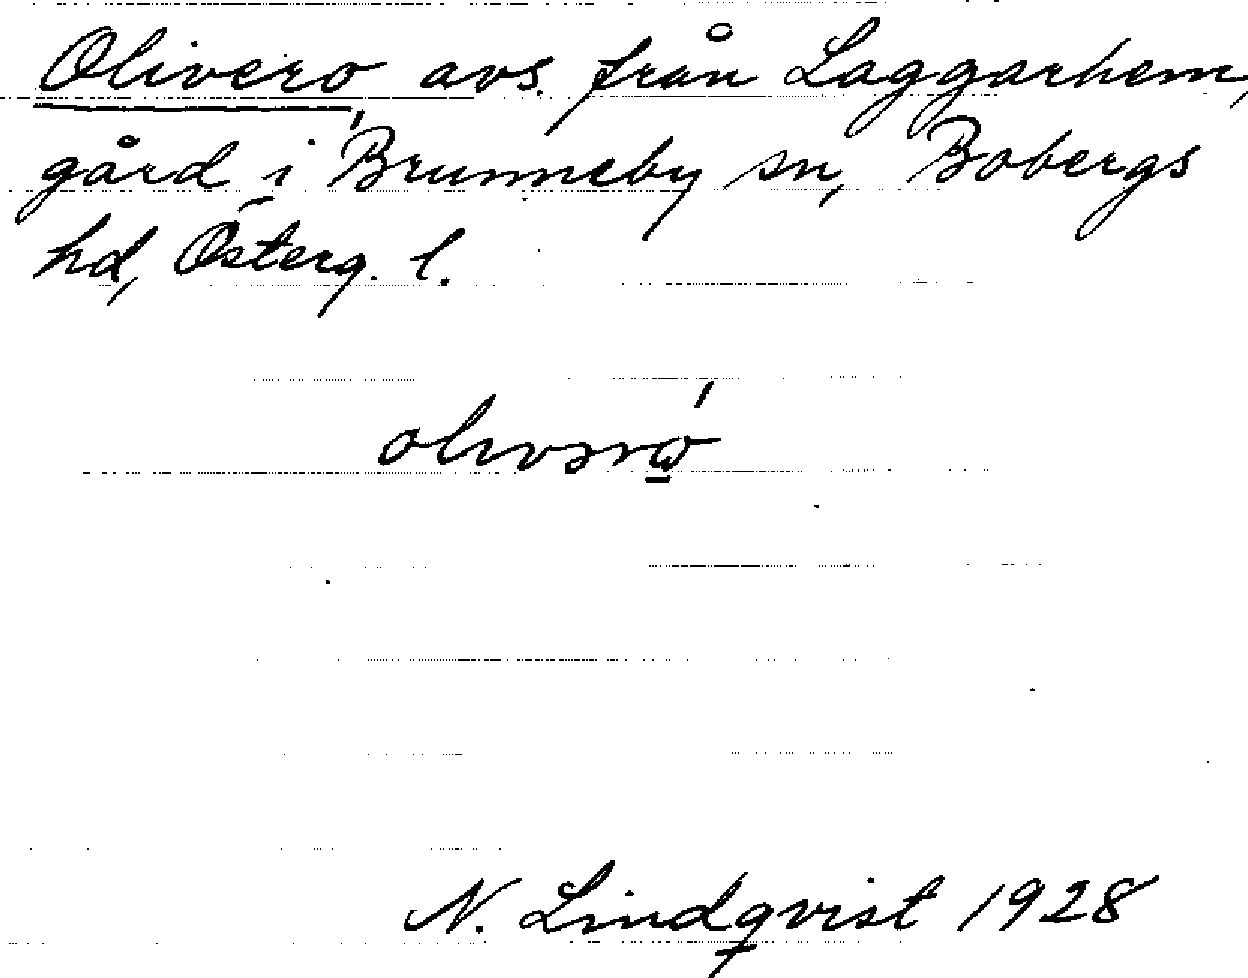 Olivero, avs. från Laggarhem,
gård i Brunneby sn, Bobergs
hd, Österg. l.
N. Lindqvist 1928